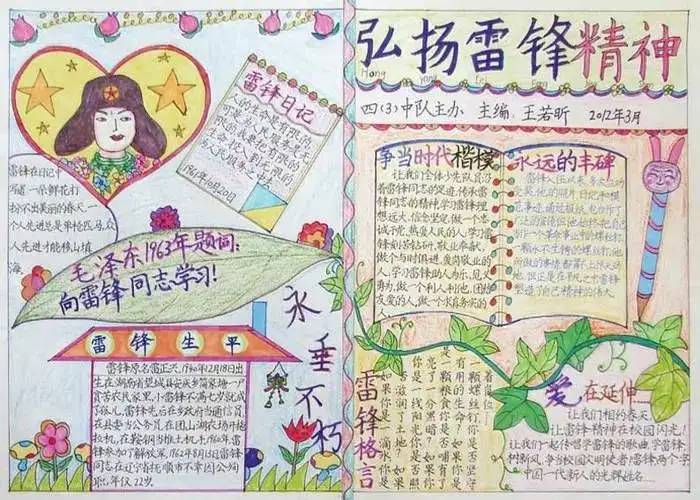 弘扬雷锋精神
Hong yang lei Feng
四(3)中队主办 主编:王若昕 2012年3月
雷锋日记
人的生命是有限的
可是,为人民服务是无
限的,我要把有限的
生命,投入到无限的
为人民服务之中去。
1961年10月20日
雷锋在日记中
写道一朵鲜花打
扮不出美丽的春天,一
个人先进总是单枪匹马,众
人先进才能移山填
海。
毛泽东1963年题词:
向雷锋同志学习!
永垂不朽
雷锋生平
雷锋原名雷正兴,1940年12月18日出
生在湖南省望城县安庆乡简家塘一户
贫苦农民家里,小雷锋不满七岁就成
了孤儿。雷锋先后在乡政府当通信员,
在县委当公务员,在团山湖农场开拖
拉机,在鞍钢当推土机手,1960年,雷
锋参加了解放军。1962年8月15日雷锋
同志在辽宁省抚顺市不幸因公殉
职,年仅22岁。
争当时代楷模
让我们全体少先队员沿
着雷锋同志的足迹,传承雷
锋同志的精神,学习雷锋理
想远大,信念坚定,做一个忠
诚不死,热爱人民的人;学习雷
锋刻苦钻研,敬业奉献,
做个与时俱进,爱岗敬业的
人;学习雷锋助人为乐,见义
勇为,做一个利人利他,团结
友爱的人,做一个求真务实的
人。
永远的丰碑
雷锋格言
如果你是一滴水,你是否
滋润了一寸土地?如果
你是一线阳光,你是否照
亮了一分黑暗?如果你是
一颗粮食,你是否哺育了
有用的生命?如果你是一
颗最小的螺丝钉,你是否坚守
爱在延伸……
让我们相约春天
让雷锋精神在校园闪光!
让我们一起传唱学雷锋的歌曲,学雷锋
树新风,争当校园文明使者!雷锋,两个字
中国一代新人的光辉姓名……